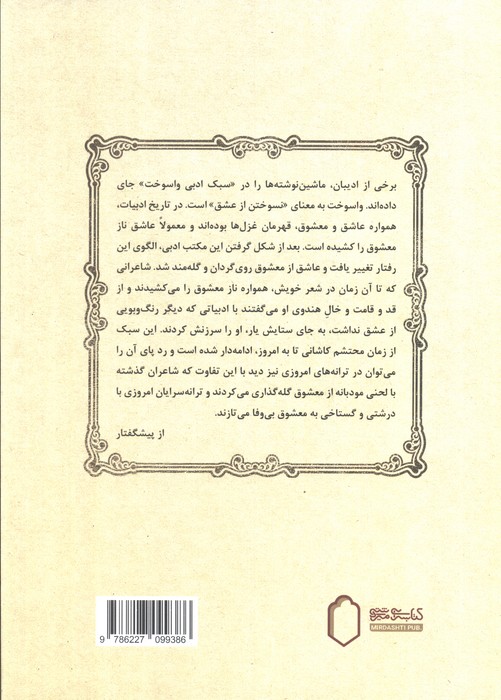 برخی از ادیبان، ماشین‌نوشته‌ها را در «سبک ادبی واسوخت» جای
داده‌اند. واسوخت به معنای «نسوختن از عشق» است. در تاریخ ادبیات،
همواره عاشق و معشوق، قهرمان غزل‌ها بوده‌اند و معمولاً عاشق ناز
معشوق را کشیده است. بعد از شکل گرفتن این مکتب ادبی، الگوی این
رفتار تغییر یافت و عاشق از معشوق روی‌گردان و گله‌مند شد. شاعرانی
که تا آن زمان در شعر خویش، همواره ناز معشوق را می‌کشیدند و از
قد و قامت و خال هندوی او می‌گفتند با ادبیاتی که دیگر رنگ‌وبویی
از عشق نداشت، به جای ستایش یار، او را سرزنش کردند. این سبک
از زمان محتشم کاشانی تا به امروز، ادامه‌دار شده است و رد پای آن را
می‌توان در ترانه‌های امروزی نیز دید با این تفاوت که شاعران گذشته
با لحنی مودبانه از معشوق گله‌گذاری می‌کردند و ترانه‌سرایان امروزی با
درشتی و گستاخی به معشوق بی‌وفا می‌تازند.
از پیشگفتار
9 786227 099386
کتابسرای میردشتی
MIRDASHTI PUB.